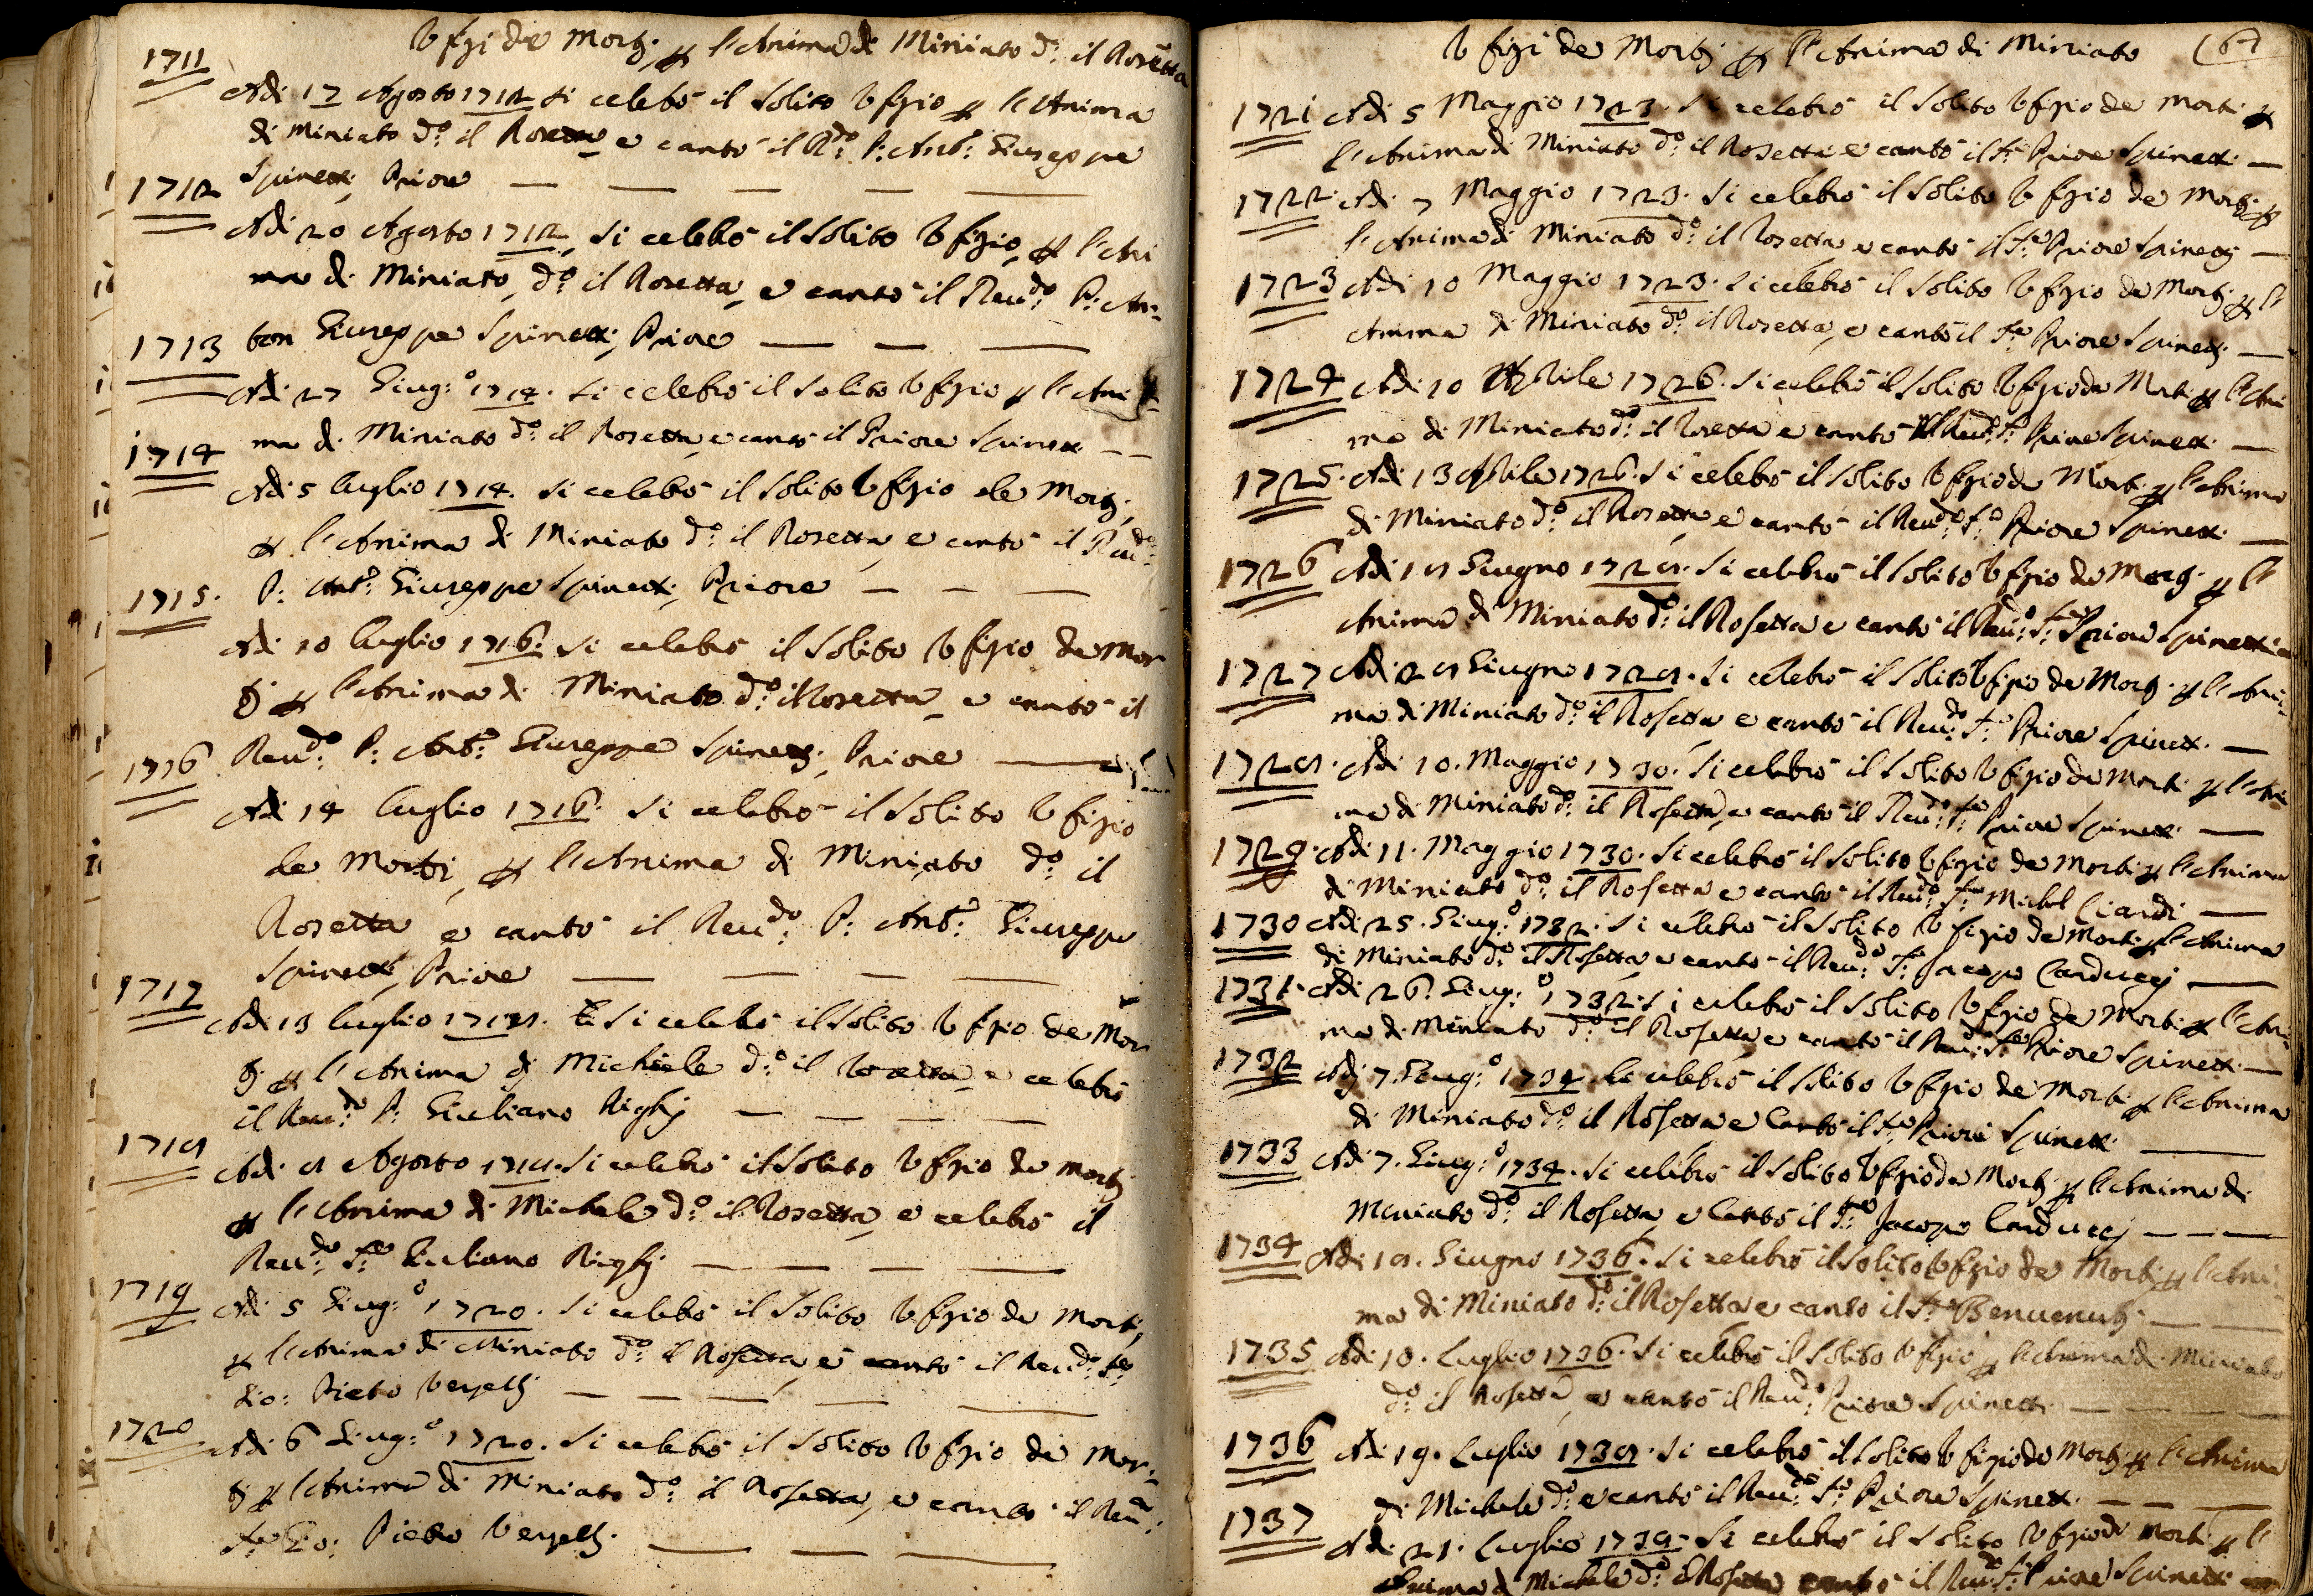 Vfizi de Morti, p l'Anima di Miniato d:o il Rosetta
1711
Adi 17 Agosto 1712 si celebrò il solito Vfizio p l'Anima
di Miniato d:o il Rosetta e cantò il R:do P: Ant:o Giuseppe
Spinetti Priore
1712
Adi 20 Agosto 1712 si celebrò il solito Vfizio, p l'Ani
ma di Miniato, d:o il Rosetta, e cantò il Reu:do P: An-
ton Giuseppe Spinetti, Priore
1713
Adi 27 Giug:o 1714. si celebrò il solito Vfizio p l'Ani
ma di Miniato d:o il Rosetta, e cantò il Priore Spinetti
1714
Adi 5 luglio 1714. si celebrò il solito Vfizio de Morti,
p l'Anima di Miniato d:o il Rosetta, e cantò il Reu:do
P: Ant:o Giuseppe Spinetti, Priore
1715.
Adi 10 luglio 1716: si celebrò il solito Vfizio de Mor
ti p l'Anima di Miniato d:o il Rosetta, e cantò il
Reu:do P: Ant:o Giuseppe Spinetti, Priore
1716
Adi 14 luglio 1716: si celebrò il solito Vfizio
de Morti, p l'Anima di Miniato d:o il
Rosetta, e cantò il Reu:do P: Ant:o Giuseppe
Spinetti, Priore
1717
Adi 13 luglio si celebrò il solito Vfizio de Mor
ti p l'Anima di Michiele d:o il Rosetta e celebrò
il Reu:do P: Giuliano Righi
1718
Adi 8 Agosto 1718. si celebrò il solito Vfizio de Morti
p l'Anima di Michele d:o il Rosetta, e celebrò il
Reu:do Giuliano Righi
1719
Adi 5 Giug:o 1720. si celebrò il solito Vfizio de Morti,
p l'Anima di Miniato d:o il Rosetta, e cantò il Reu:do
Gio: Pietro
1720
Adi 6 Giug:o 1720. si celebrò il solito Vfizio de Mor-
ti p l'Anima di Miniato d:o il Rosetta, e cantò il Reu:
Gio: Pietro
Vfizi de Morti p l'Anima di Miniato (67
1721 Adi 5 Maggio 1723. si celebrò il solito Vfizio de Morti p
l'Anima di Miniato d:o il Rosetta e cantò il Priore Spinetti
1722. Adi 7 Maggio 1723. si celebrò il solito Vfizio de Morti p
l'Anima di Miniato d:o il Rosetta e cantò il Priore Spinetti
1723 Adi 10 Maggio 1723. si celebrò il solito Vfizio de Morti p l'
Anima di Miniato d:o il Rosetta, e cantò il Priore Spinetti
1724 Adi 10 Aprile 1726. si celebrò il solito Vfizio de Morti p l'Ani
ma di Miniato d:o il Rosetta e cantò il Reu:do Priore Spinetti
1725. Adi 13 Aprile 1726. si celebrò il solito Vfizio de Morti p l'Anima
di Miniato d:o il Rosetta e cantò il Reu:do Priore Spinetti
1726 Adi 18 Giugno 1728. si celebrò il solito Vfizio de Morti p l'
Anima di Miniato d:o il Rosetta e cantò il Reu:do Priore Spinetti
1727 Adi 28 Giugno 1728. si celebrò il solito Vfizio de Morti p l'Ani-
ma di Miniato d:o il Rosetta e cantò il Reu:do Priore Spinetti
1728. Adi 10. Maggio 1730. si celebrò il solito Vfizio de Morti p l'Ani
ma di Miniato d:o il Rosetta, e cantò il Reu:do Priore Spinetti
1729. Adi 11. Maggio 1730. si celebrò il solito Vfizio de Morti p l'Anima
di Miniato d:o il Rosetta e cantò il Reu:do Ciardi
1730 Adi 25. Giug:o 1732. si celebrò il solito Vfizio de Morti p l'Anima
di Miniato d:o il Rosetta e cantò il Reu:do Jacopo Carducci
1731. Adi 26. Giug:o 1732. si celebrò il solito Vfizio de Morti p l'Ani-
ma di Miniato d:o il Rosetta e cantò il Reu:do Priore Spinetti
1732 Adi 7. Giug:o 1734. si celebrò il solito Vfizio de Morti p l'Anima
di Miniato d:o il Rosetta e Cantò il Priore Spinetti
1733 Adi 7. Giug:o 1734. si celebrò il solito Vfizio de Morti p l'Anima di
Miniato d:o il Rosetta, e Cantò il Jacopo Carducci
1734 Adi 18. Giugno 1736. si celebrò il solito Vfizio de Morti p l'Ani
ma di Miniato d:o il Rosetta e cantò il Benvenuti
1735 Adi 10. Luglio 1736. si celebrò il solito Vfizio p l'Anima di Miniato
d:o il Rosetta, e cantò il Reu:do Priore Spinetti
1736 Adi 19. Luglio 1738. si celebrò il solito Vfizio de Morti p l'Anima
di Michele d:o e cantò il Reu:do Priore Spinetti
1737 Adi 21. Luglio 1738. si celebrò il solito Vfizio de Morti p l'
Anima di Michele d:o il Rosetta cantò il Reu:do Priore Spinetti